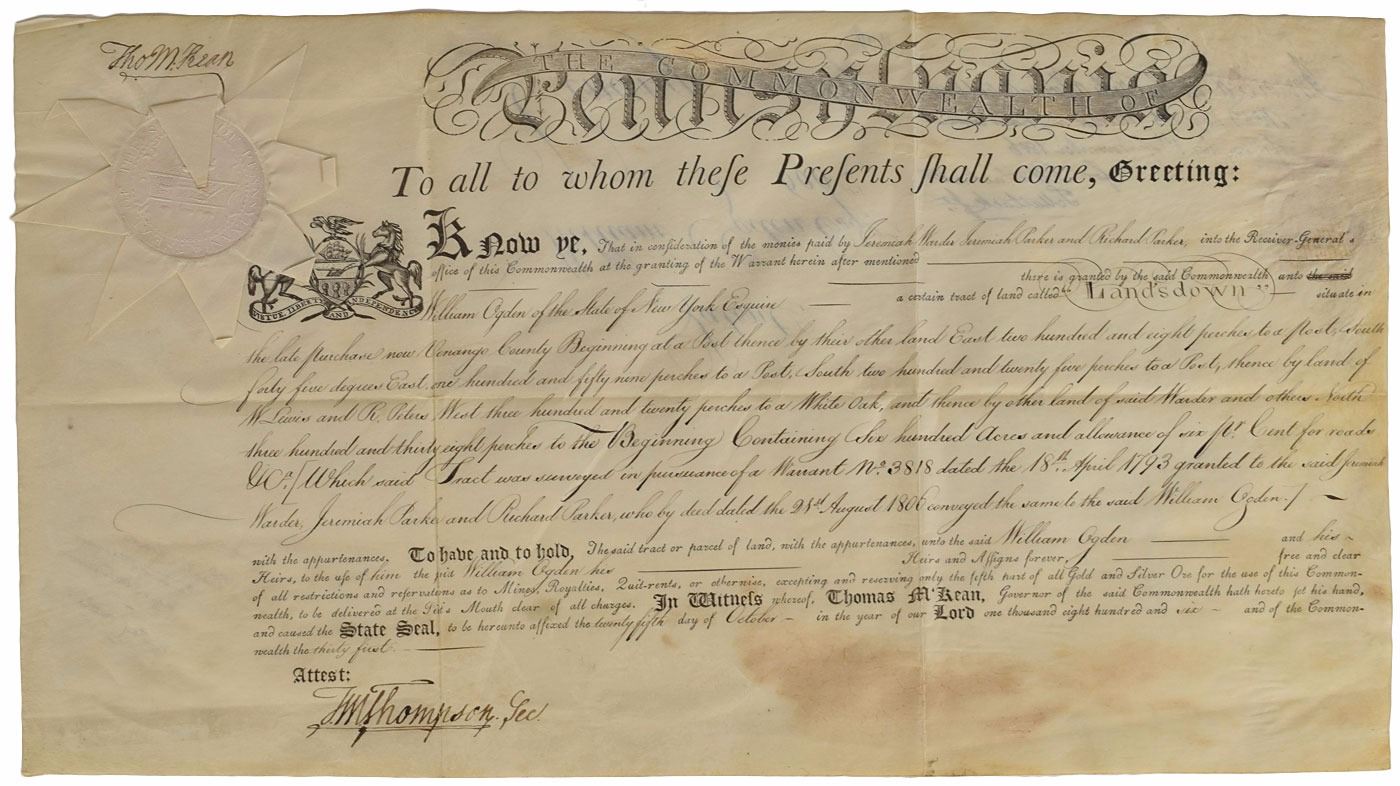 Tho M:Kean
THE COMMONWEALTH OF
Pennsylvania
To all to whom theſe Preſents ſhall come, Greeting:
Know ye, That in conſideration of the monies paid by Jeremiah Warder Jeremiah Parker and Richard Parker, into the Receiver-General's
office of this Commonwealth at the granting of the Warrant herein after mentioned there is granted by the said Commonwealth unto the said
William Ogden of the State of New York Esquire a certain tract of land called "Landsdown" situate in
VIRTUE LIBERTY AND INDEPENDENCE
the late purchase now Venango County Beginning at a Post thence by their other land East two hundred and eight perches to a Post, South
forty five degees East one hundred and fifty nine perches to a Post, South two hundred and twenty five perches to a Post, thence by land of
W Lewis and R. Peters West three hundred and twenty perches to a White Oak, and thence by other land of said Warder and others North
three hundred and thirty eight perches to the Beginning Containing Six hundred Acres and allowance of six pr. Cent for roads
&Ca./ Which said Tract was surveyed in pursuance of a Warrant No. 3818 dated the 18th. April 1793 granted to the said Jeremiah
Warder, Jeremiah Parker and Richard Parker, who by deed dated the 21st August 1806 conveyed the same to the said William Ogden./
with the appurtenances. To have and to hold, The said tract or parcel of land, with the appurtenances, unto the said William Ogden and his
Heirs, to the uſe of him the said William Ogden his Heirs and Aſsigns forever, free and clear
of all restrictions and reſervations as to Mines, Royalties, Quit-rents, or otherwise, excepting and reſerving only the fifth part of all Gold and Silver Ore for the use of this Common-
wealth, to be delivered at the Pit's Mouth clear of all charges. In Witneſs whereof, Thomas M'Kean, Governor of the said Commonwealth hath hereto ſet his hand,
and cauſed the State Seal, to be hereunto affixed the twenty fifth day of October in the year of our Lord one thousand eight hundred and six and of the Common-
wealth the thirty first.
Attest:
TMThompson. Sec.